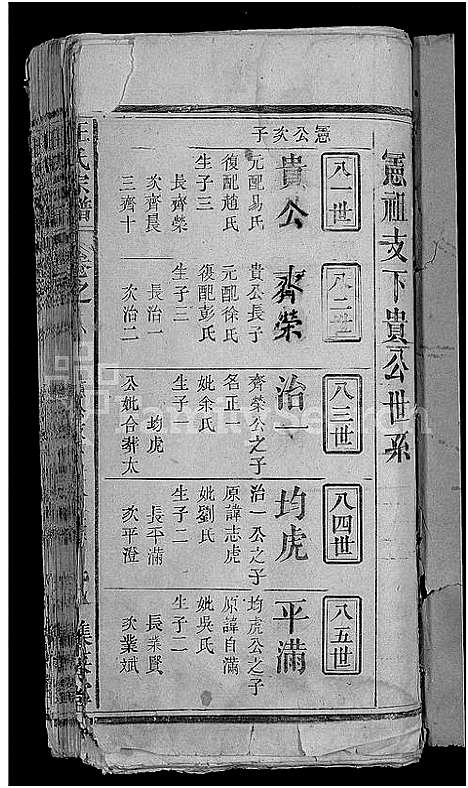 憲祖支下貴公世系
八一世
憲公次子
貴公
元配易氏
復配趙氏
生子三
長齊榮
次齊晨
三齊十
八二世
齊榮
貴公長子
元配徐氏
復配彭氏
生子三
長治一
次治二
八三世
治一
齊榮公之子
名正一
妣余氏
生子
均虎
公妣合葬太
八四世
均虎
治一公之子
原諱志虎
妣劉氏
生子二
長平滿
次平澄
八五世
平滿
均虎公之子
原諱自滿
妣吳氏
生子二
長業賢
次業斌
氏宗譜
卷之八